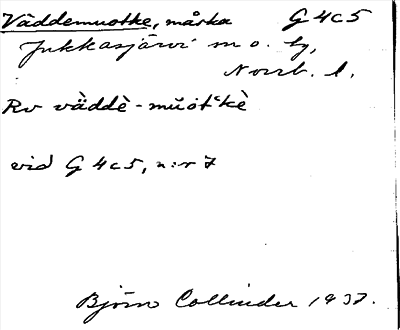 Väddemuotke, måska G4c5
Jukkasjärvi m o. by,
Norrb. l.
Rv väddè-muòt'kè
vid G4c5, n:r 7
Björn Collinder 1937.